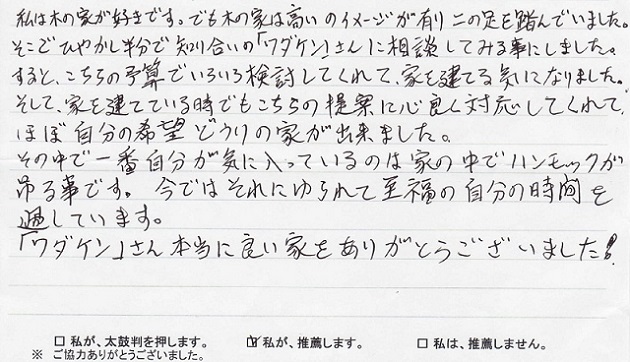 私は木の家が好きです。でも木の家は高いのイメージが有り二の足を踏んでいました。
そこでひやかし半分で知り合いの「ワダケン」さんに相談してみる事にしました。
すると、こちらの予算でいろいろ検討してくれて、家を建てる気になりました。
そして、家を建てている時でもこちらの提案に心良く対応してくれて、
ほぼ自分の希望どうりの家が出来ました。
その中で一番自分が気に入っているのは家の中でハンモックが
吊る事です。今ではそれにゆられて至福の自分の時間を
過しています。
「ワダケン」さん本当に良い家をありがとうございました!
□ 私が、太鼓判を押します。 ☑ 私が、推薦します。 □ 私は、推薦しません。
※ ご協力ありがとうございました。